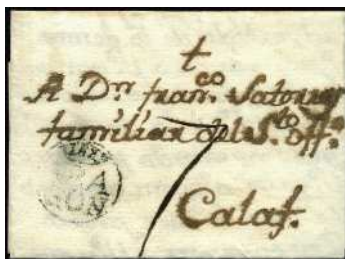 t
A Dn. franco. Satorras
familiar del Sto. offo.
7
Calaf.